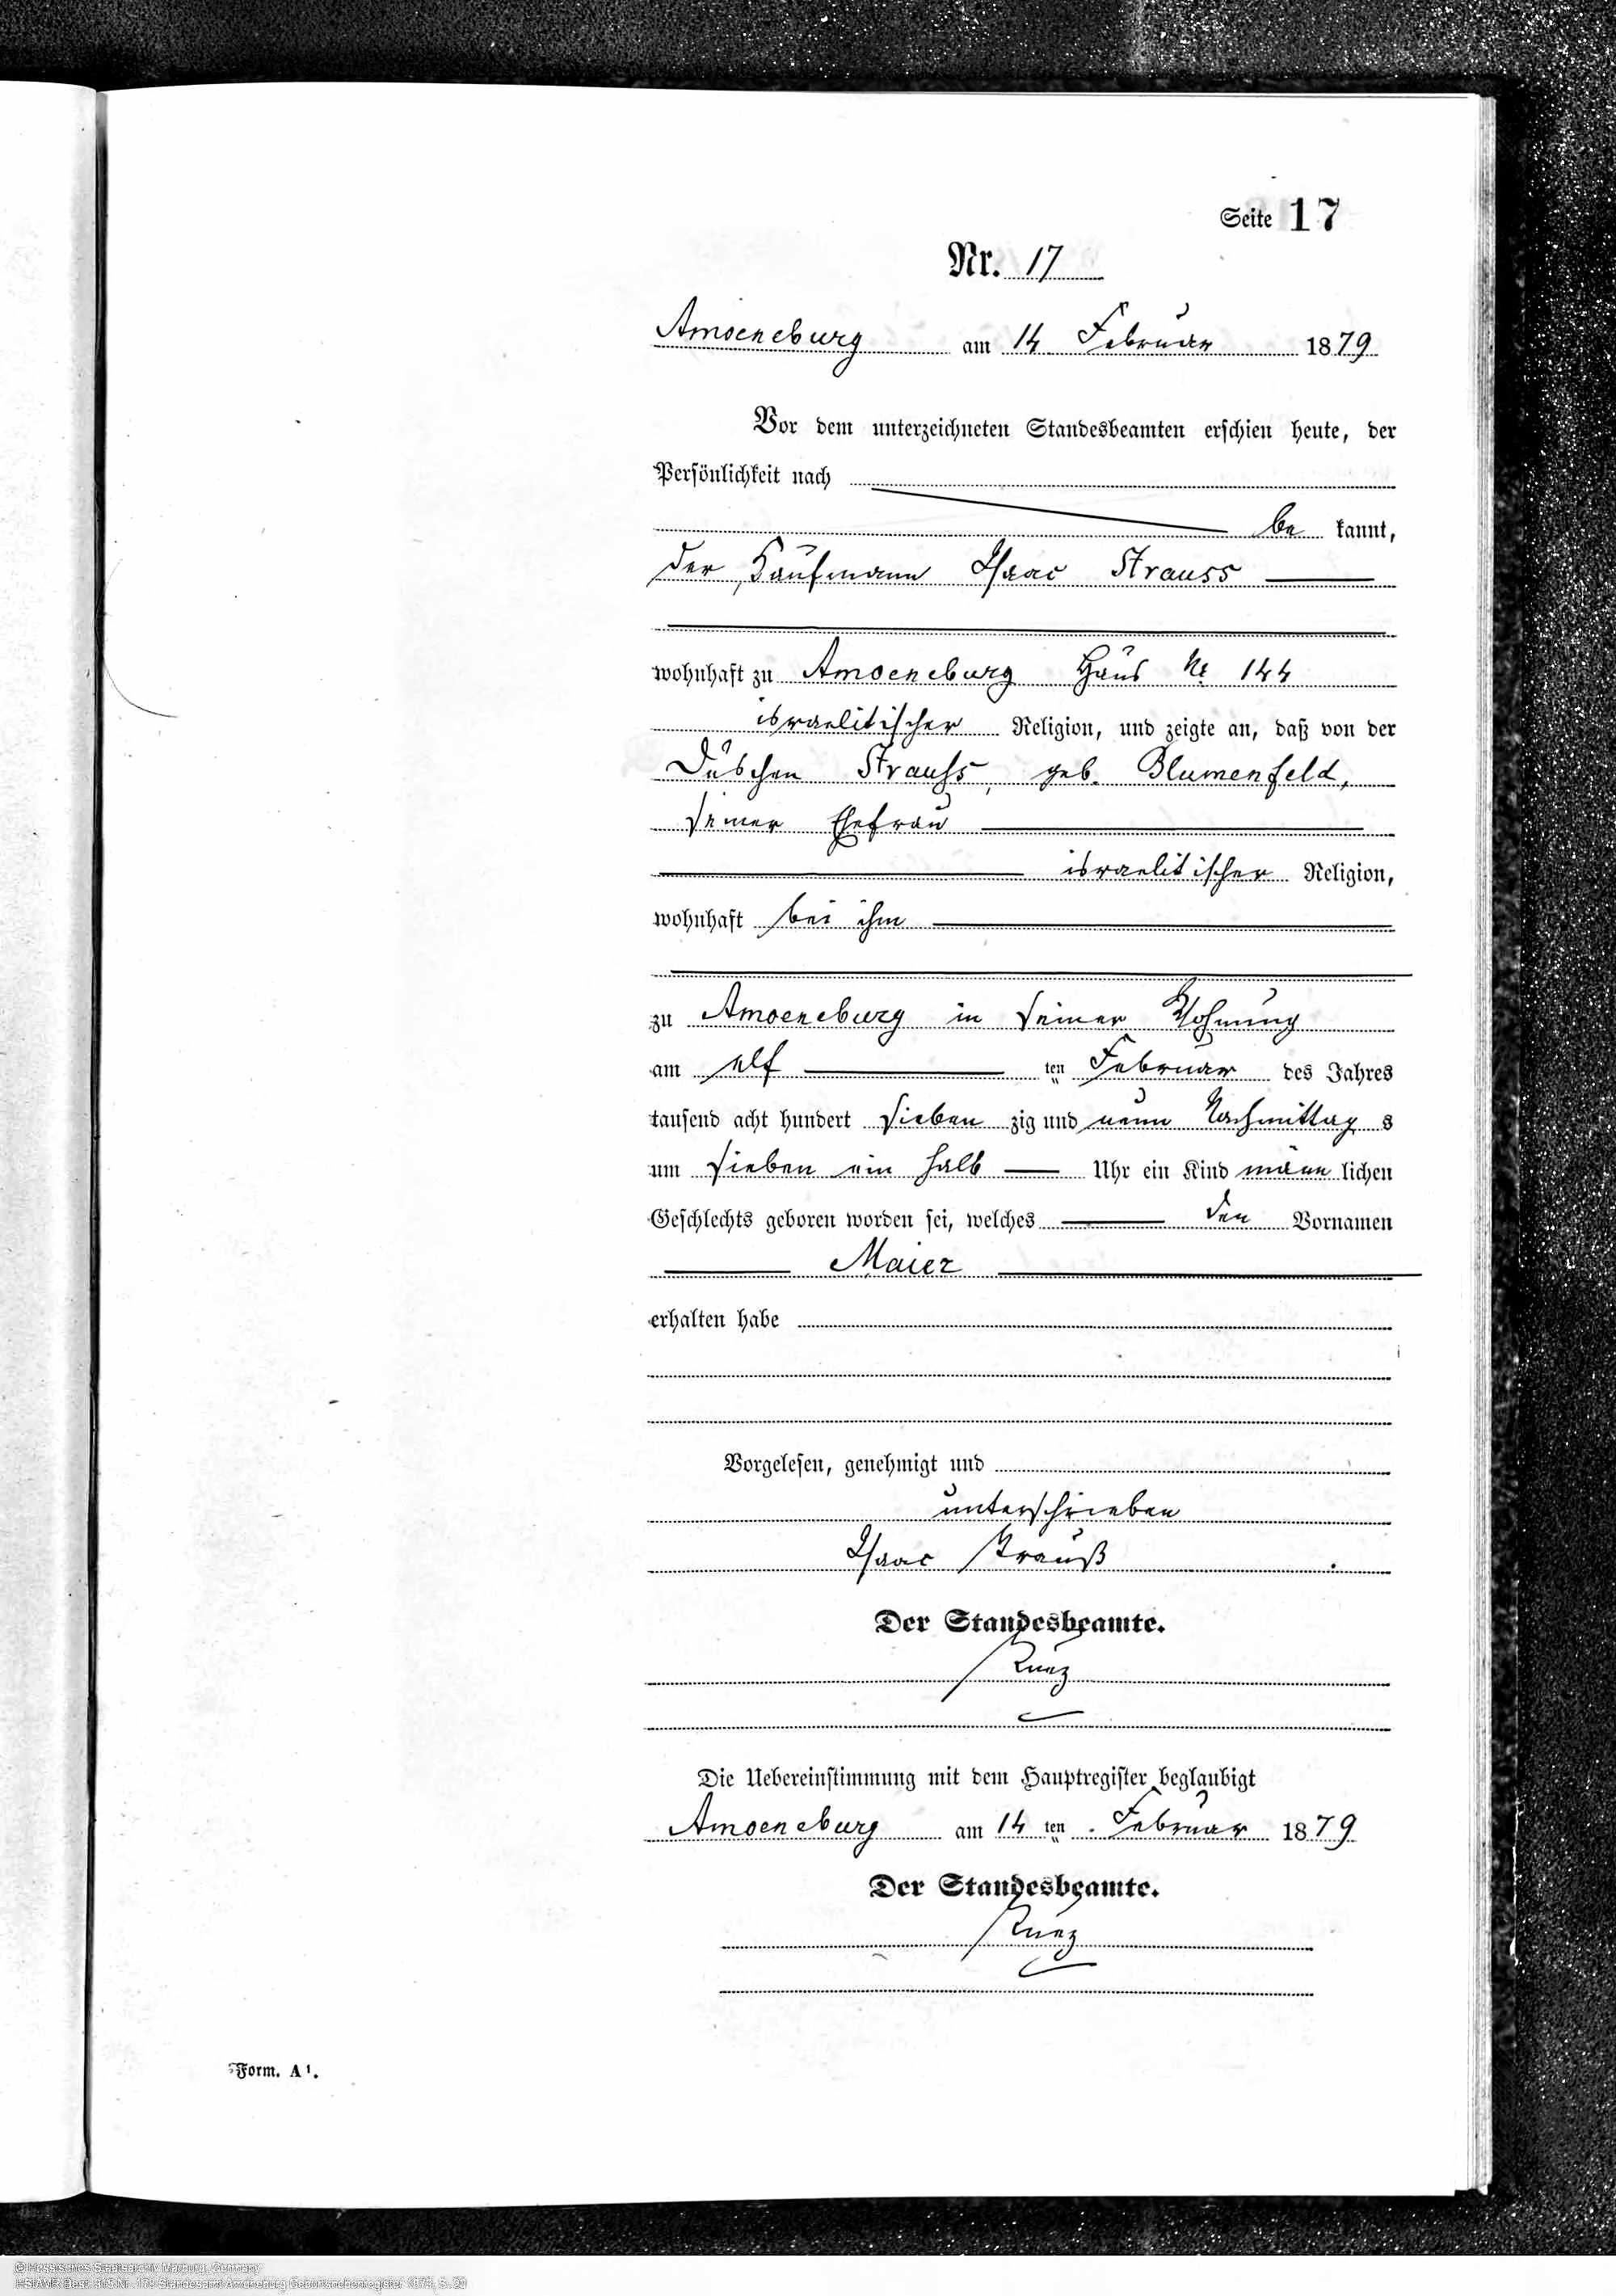 Seite 17
Nr. 17
Amoeneburg am 14 Februar 1879
Vor dem unterzeichneten Standesbeamten erschien heute, der
Persönlichkeit nach
be kannt,
der Kaufmann Isaac Strauss
wohnhaft zu Amoeneburg Haus No 144
israelitischer Religion, und zeigte an, daß von der
Däschen Strauss, geb. Blumenfeld,
seiner Ehefrau
israelitischer Religion,
wohnhaft bei ihm
zu Amoeneburg in seiner Wohnung
am elf ten Februar des Jahres
tausend acht hundert sieben zig und neun Nachmittag s
um sieben ein halb Uhr ein Kind männ lichen
Geschlechts geboren worden sei, welches den Vornamen
Maier
erhalten habe
Vorgelesen, genehmigt und
unterschrieben
Isaac Strauß
Der Standesbeamte.
Die Uebereinstimmung mit dem Hauptregister beglaubigt
Amoeneburg am 14 ten Februar 1879
Der Standesbeamte.
Form. A¹.
© Hessisches Staatsarchiv Marburg, Germany